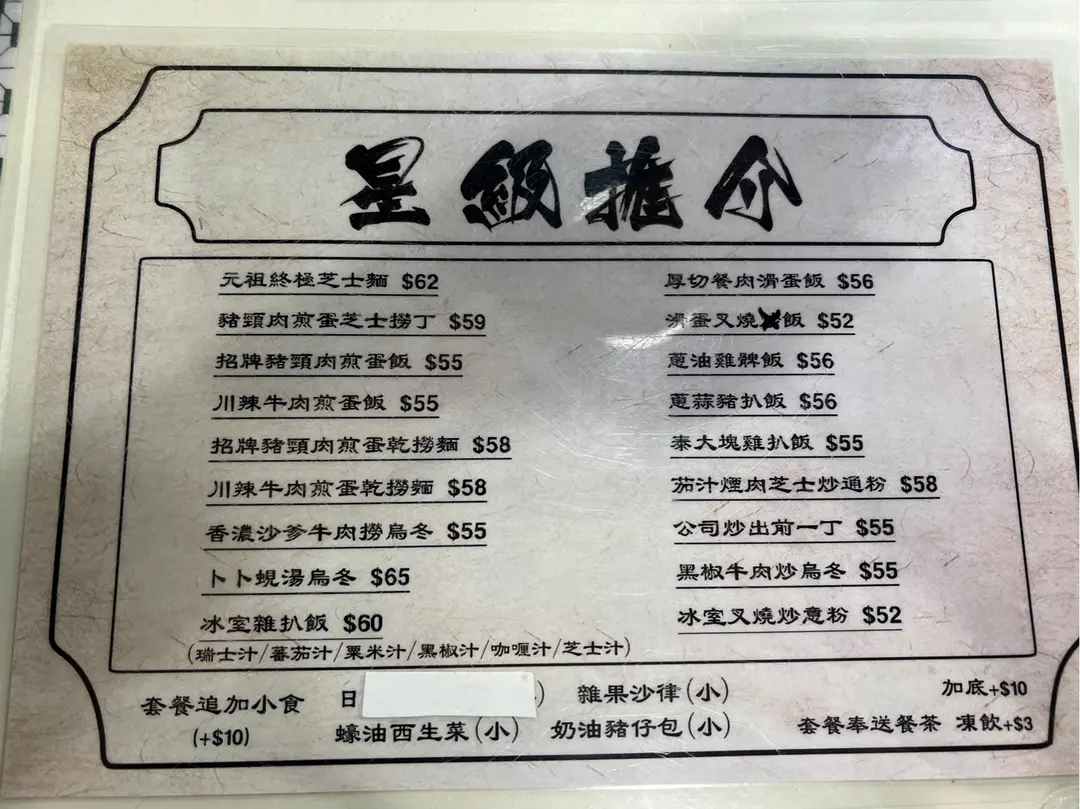 星級推介
元祖終極芝士麵 $62
豬頸肉煎蛋芝士撈丁 $59
招牌豬頸肉煎蛋飯 $55
川辣牛肉煎蛋飯 $55
招牌豬頸肉煎蛋乾撈麵 $58
川辣牛肉煎蛋乾撈麵 $58
香濃沙爹牛肉撈烏冬 $55
卜卜蜆湯烏冬 $65
冰室雜扒飯 $60
(瑞士汁/蕃茄汁/粟米汁/黑椒汁/咖喱汁/芝士汁)
厚切餐肉滑蛋飯 $56
滑蛋叉燒飯 $52
蔥油雞髀飯 $56
蔥蒜豬扒飯 $56
泰大塊雞扒飯 $55
茄汁煙肉芝士炒通粉 $58
公司炒出前一丁 $55
黑椒牛肉炒烏冬 $55
冰室叉燒炒意粉 $52
套餐追加小食
(+$10)
日 ) 雜果沙律(小)
蠔油西生菜(小) 奶油豬仔包(小)
加底+$10
套餐奉送餐茶 凍飲+$3